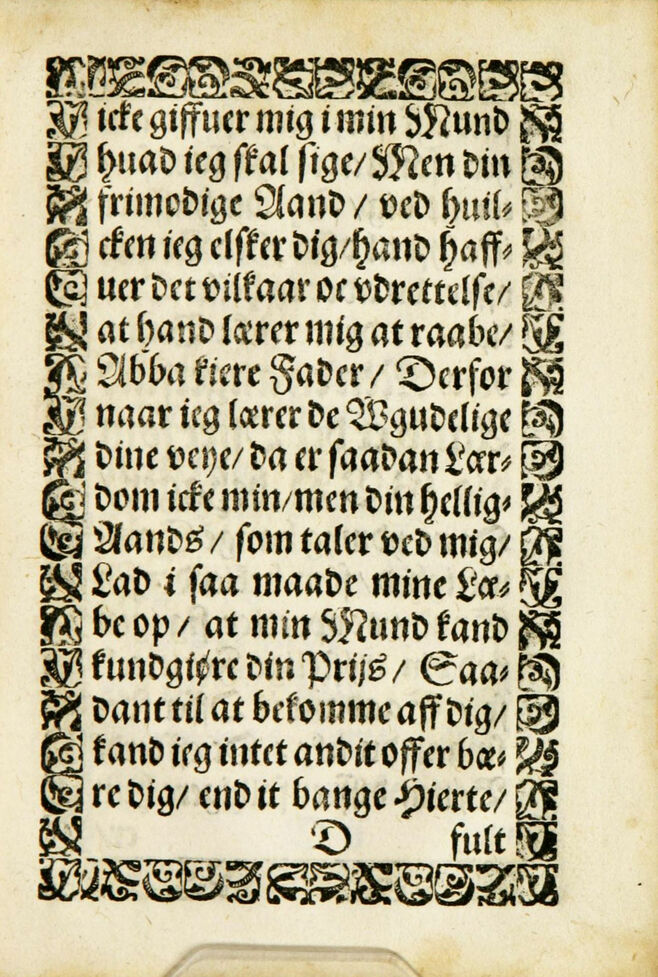 icke giffuer mig i min Mund
huad ieg skal sige/ Men din
frimodige Aand / ved huil⸗
cken ieg elsker dig/hand haff⸗
uer det vilkaar oc vdrettelse/
at hand lærer mig at raabe/
Abba kiere Fader / Derfor
naar ieg lærer de Wgudelige
dine veye/ da er saadan Lær⸗
dom icke min/men din hellig⸗
Aands / som taler ved mig/
Lad i saa maade mine Læ⸗
be op / at min Mund kand
kundgiøre din Prijs / Saa⸗
dant til at bekomme aff dig/
kand ieg intet andit offer bæ⸗
re dig/ end it bange Hierte/
D fult